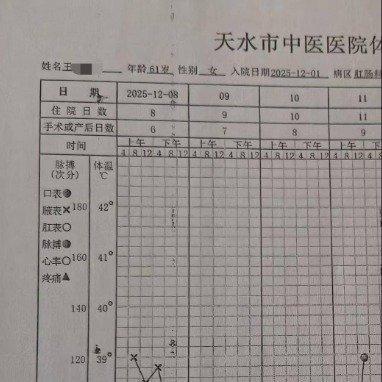 天水市中医医院体
姓名 王 年龄 61岁 性别 女 入院日期 2025-12-01 病区 肛肠科
日 期 2025-12-08 09 10 11
住院日数 8 9 10 11
手术或产后日数 6 7 8 9
时间 上午 下午 上午 下午 上午 下午 上午
4 8 12 4 8 12 4 8 12 4 8 12 4 8 12 4 8 12 4 8 12
脉搏 体温
(次分) ℃
口表
腋表× 180 42°
肛表○
脉搏
心率○ 160 41°
疼痛▲
140 40°
120 39°